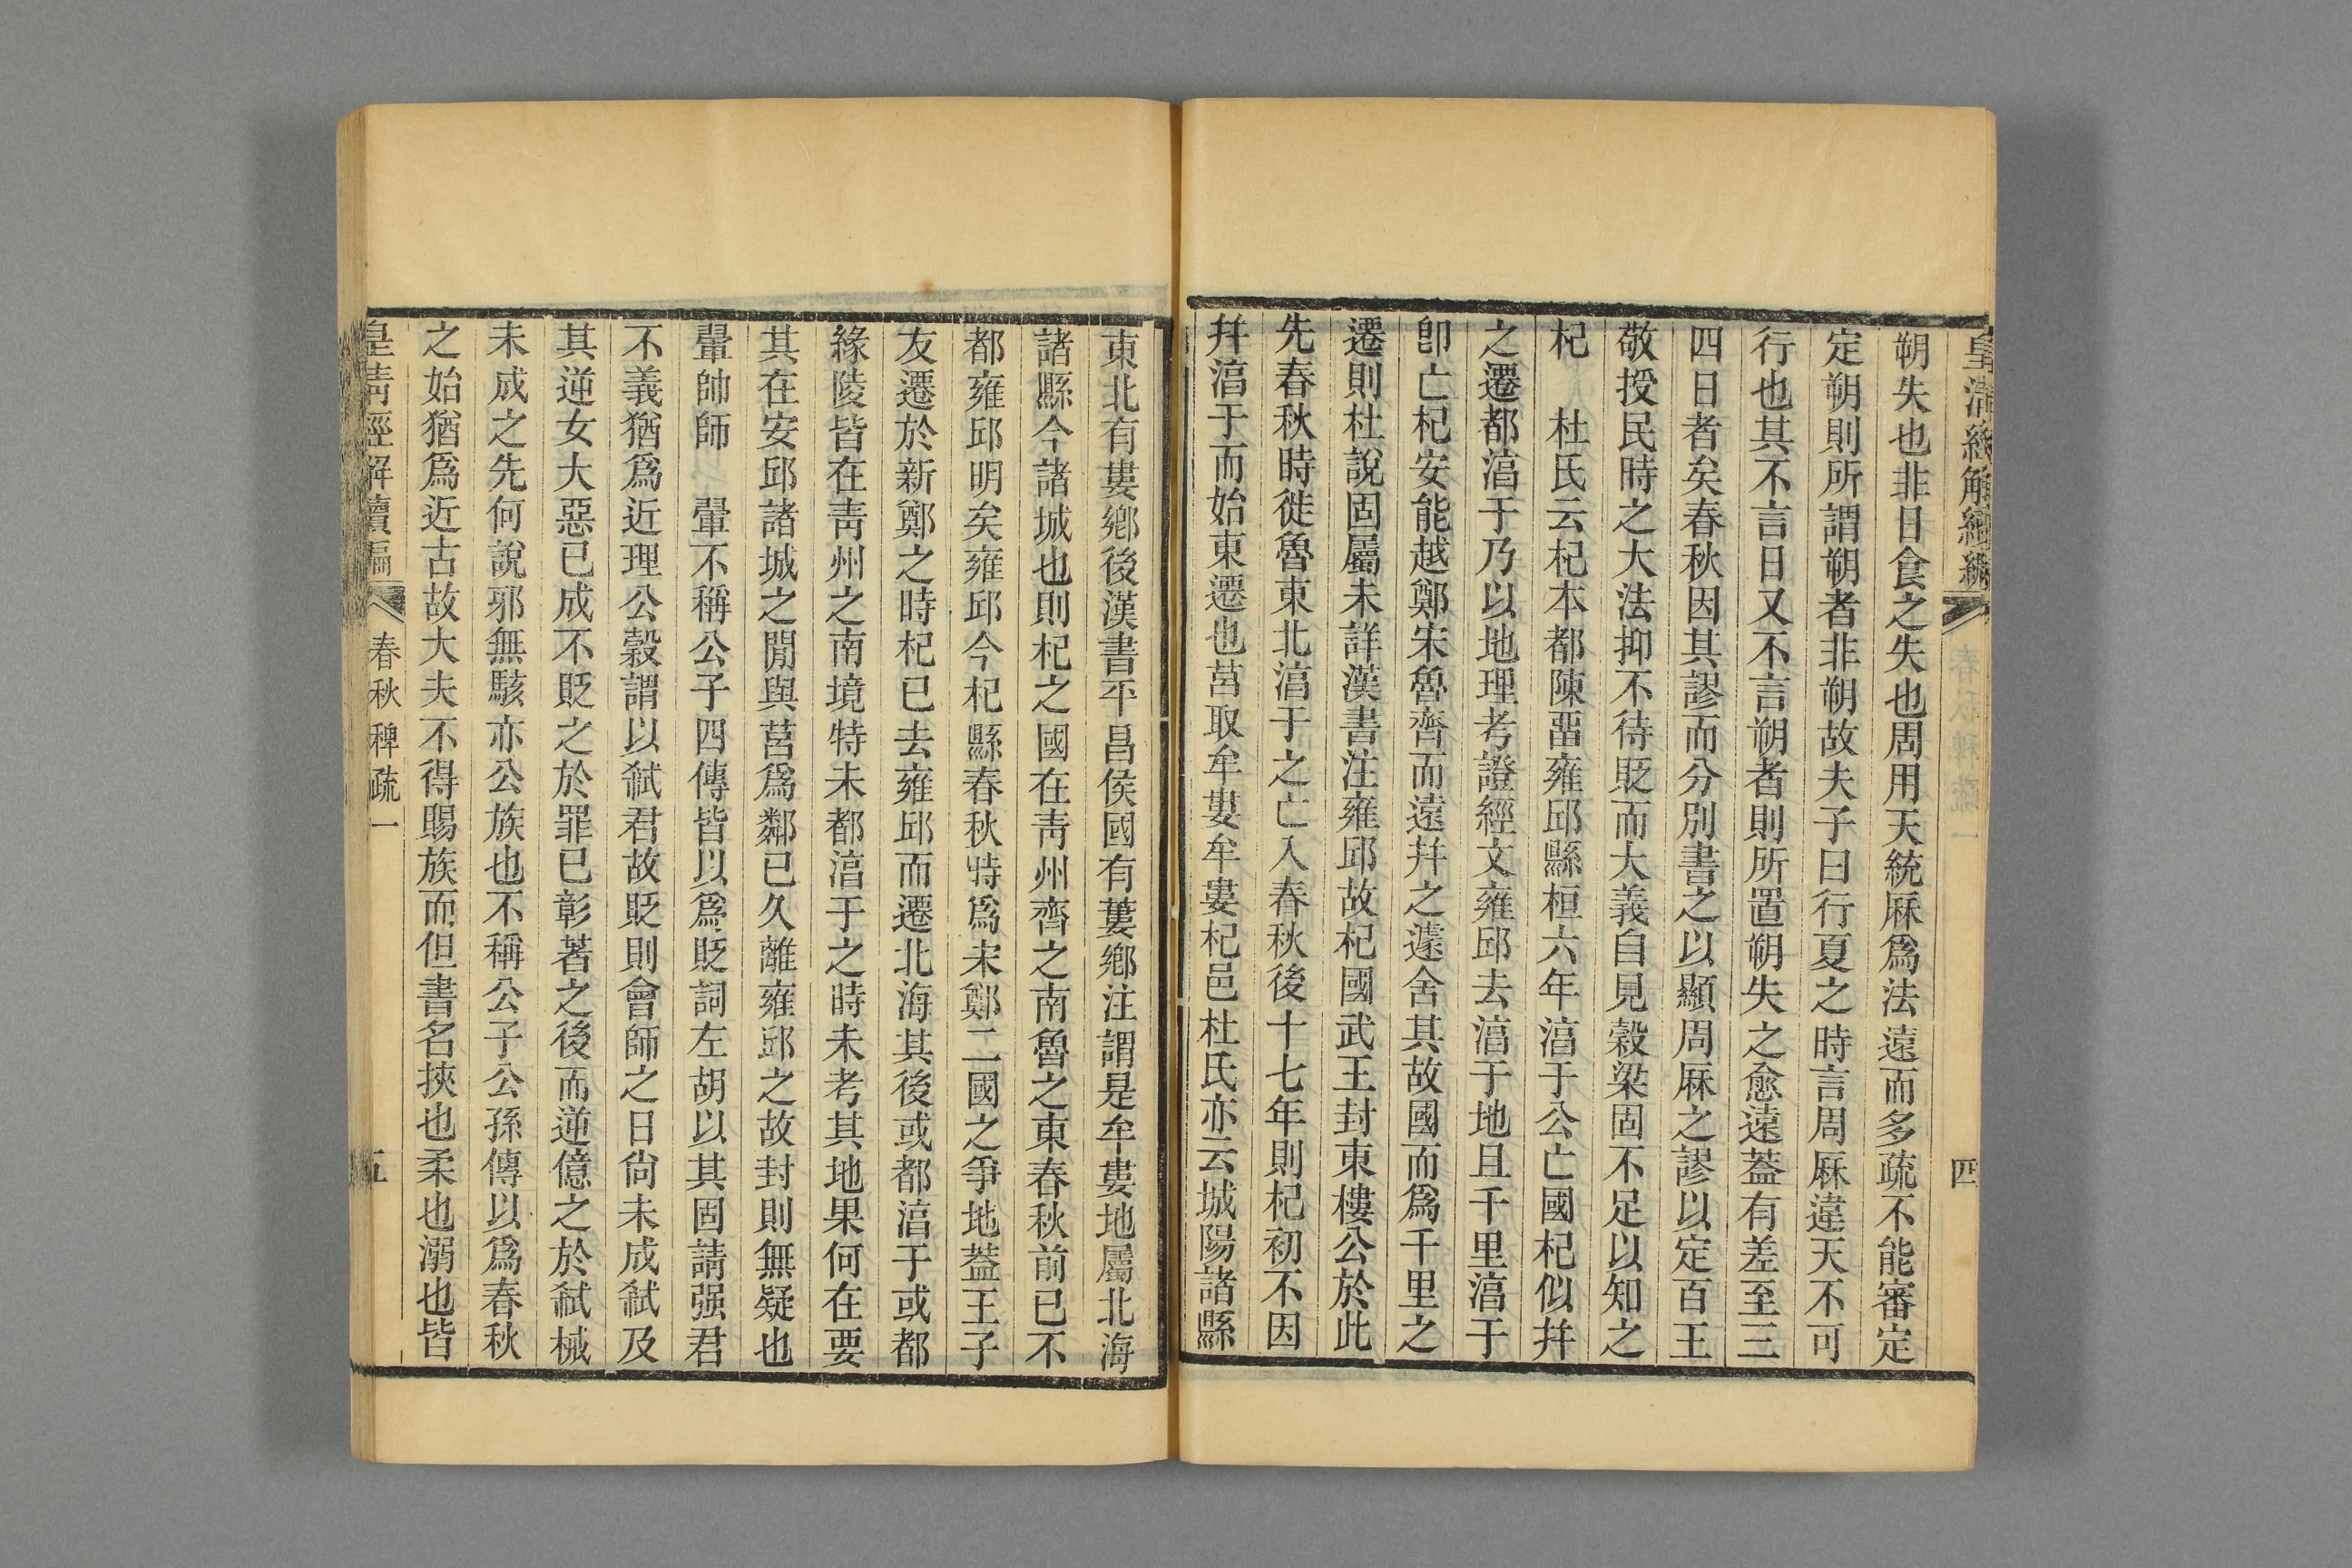 皇清經解續編
四
朔失也非日食之失也周用天統厤爲法遠而多疏不能審定
定朔則所謂朔者非朔故夫子曰行夏之時言周厤違天不可
行也其不言日又不言朔者則所置朔失之愈遠蓋有差至三
四日者矣春秋因其謬而分別書之以顯周厤之謬以定百王
敬授民時之大法抑不待貶而大義自見穀梁固不足以知之
杞　杜氏云杞本都陳畱雍邱縣桓六年湻于公亡國杞似幷
之遷都湻于乃以地理考證經文雍邱去湻于地且千里湻于
卽亡杞安能越鄭宋魯齊而遠幷之遽舍其故國而爲千里之
遷則杜說固屬未詳漢書注雍邱故杞國武王封東樓公於此
先春秋時徙魯東北湻于之亡入春秋後十七年則杞初不因
幷湻于而始東遷也莒取牟婁牟婁杞邑杜氏亦云城陽諸縣
東北有婁鄉後漢書平昌侯國有蔞鄉注謂是牟婁地屬北海
諸縣今諸城也則杞之國在靑州齊之南魯之東春秋前已不
都雍邱明矣雍邱今杞縣春秋時爲宋鄭二國之爭地蓋王子
友遷於新鄭之時杞已去雍邱而遷北海其後或都湻于或都
緣陵皆在靑州之南境特未都湻于之時未考其地果何在要
其在安邱諸城之閒與莒爲鄰已久離雍邱之故封則無疑也
翬帥師　翬不稱公子四傳皆以爲貶詞左胡以其固請强君
不義猶爲近理公穀謂以弑君故貶則會師之日尙未成弑及
其逆女大惡已成不貶之於罪已彰著之後而逆億之於弑械
未成之先何說邪無駭亦公族也不稱公子公孫傳以爲春秋
之始猶爲近古故大夫不得賜族而但書名挾也柔也溺也皆
皇清經解續編
春秋稗疏一
五